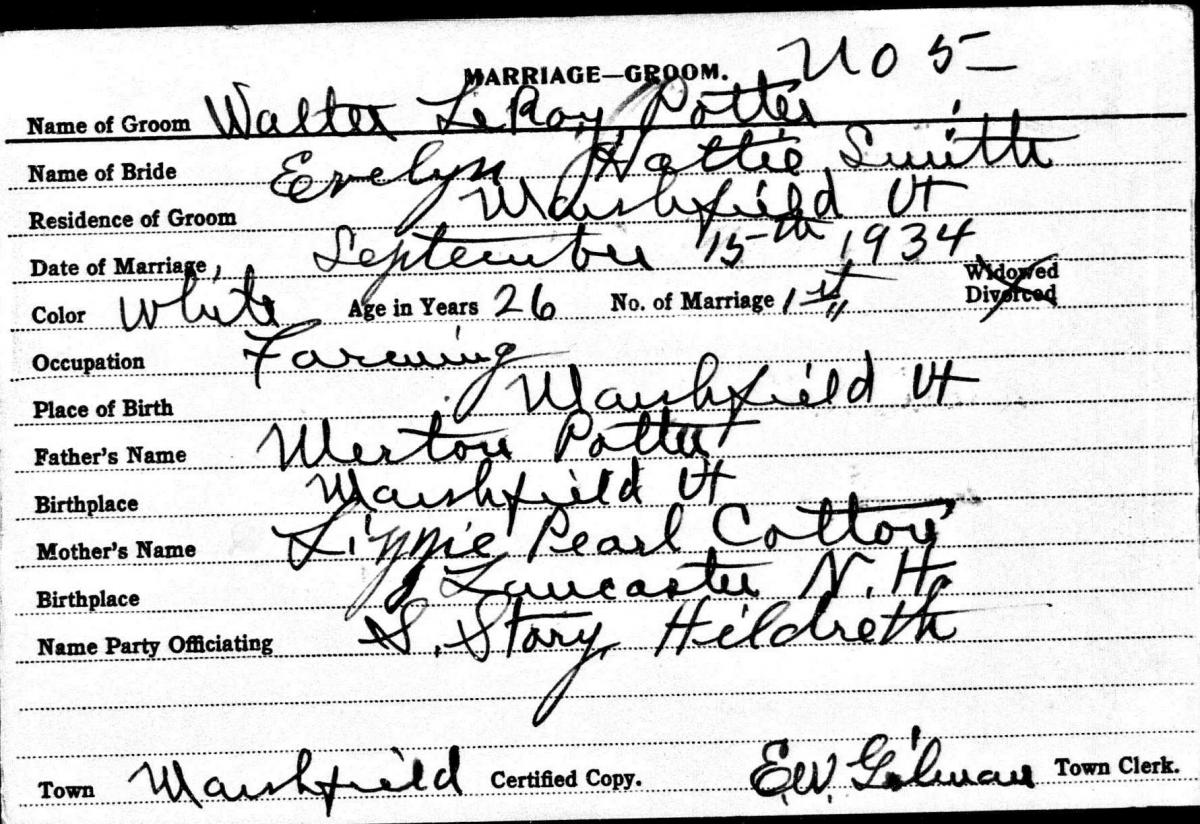 MARRIAGE—GROOM. No 5
Name of Groom Walter LeRoy Potter
Name of Bride Evelyn Hattie Smith
Residence of Groom Marshfield Vt
Date of Marriage, September 15th 1934
Widowed
Color White Age in Years 26 No. of Marriage 1st Divorced
Occupation Farming
Place of Birth Marshfield Vt
Father's Name Merton Potter
Birthplace Marshfield Vt
Mother's Name Lizzie Pearl Cotton
Birthplace Lancaster N.H.
Name Party Officiating S. Story Hildreth
Town Marshfield Certified Copy. E.W. Gilman Town Clerk.